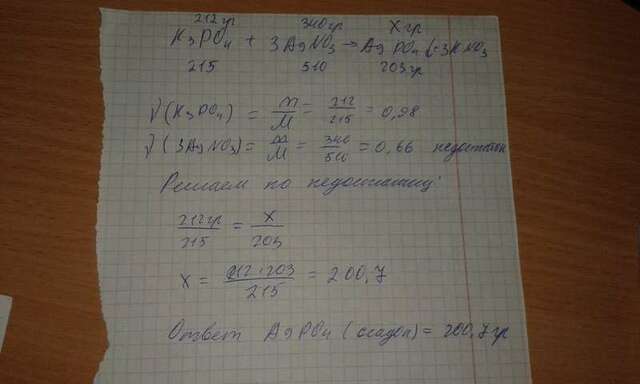 212гр 340гр Xгр
K₃PO₄ + 3AgNO₃ → Ag PO₄ + 3KNO₃
215 510 203гр
ν(K₃PO₄) = m/M = 212/215 = 0,98
ν(3AgNO₃) = m/M = 340/510 = 0,66 недостаток
Решаем по недостатку:
212гр/215 = X/203
X = 212·203/215 = 200,7
Ответ AgPO₄ (осадок) = 200,7гр